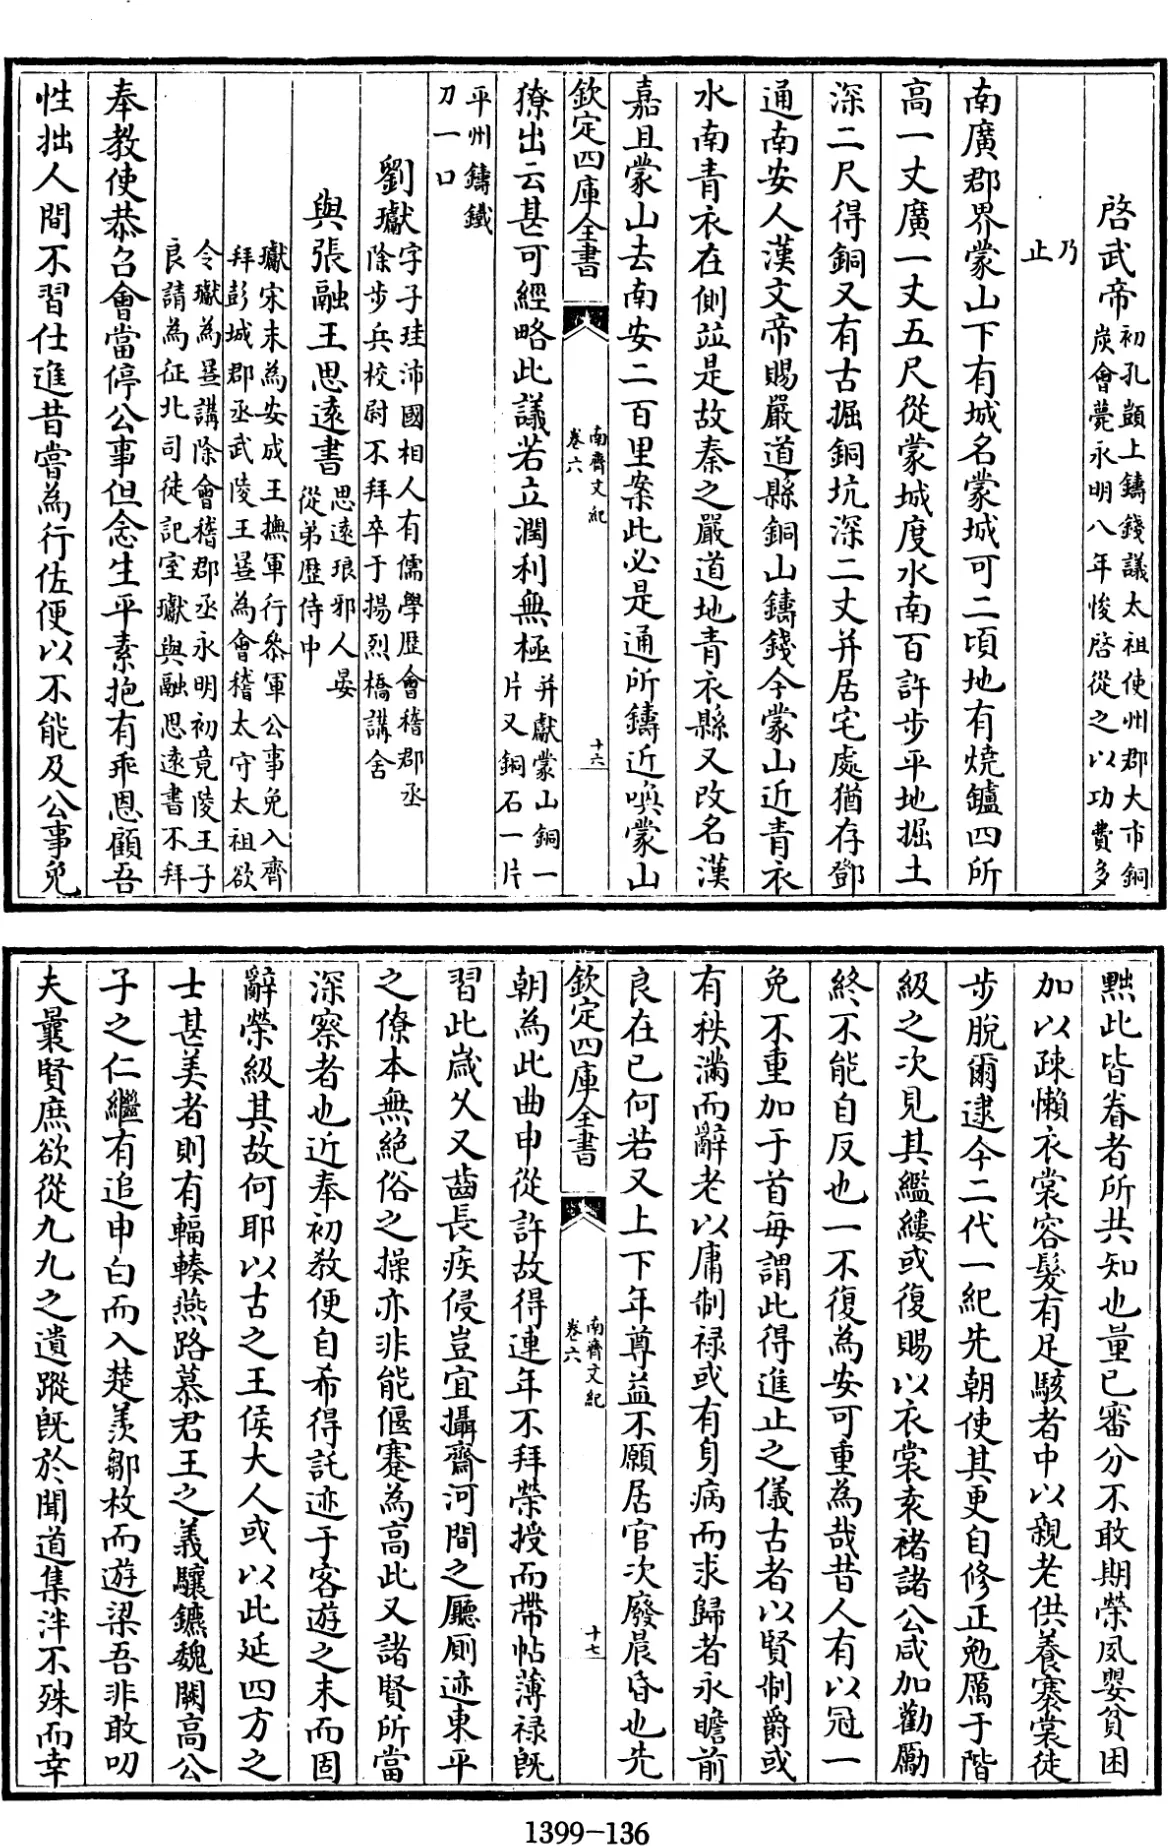 啓武帝初孔顗上鑄錢議太祖使州郡大市銅
炭會薨永明八年悛啓從之以功費多
乃
止
南廣郡界蒙山下有城名蒙城可二頃地有燒鑪四所
高一丈廣一丈五尺從蒙城度水南百許步平地掘土
深二尺得銅又有古掘銅坑深二丈并居宅處猶存鄧
通南安人漢文帝賜嚴道縣銅山鑄錢今蒙山近青衣
水南青衣在側並是故秦之嚴道地青衣縣又改名漢
嘉且蒙山去南安二百里案此必是通所鑄近喚蒙山
欽定四庫全書
南齊文紀
卷六
十六
獠出云甚可經略此議若立潤利無極并獻蒙山銅一
片又銅石一片
平州鑄鐵
刀一口
劉瓛字子珪沛國相人有儒學歷會稽郡丞
除步兵校尉不拜卒于揚烈橋講舍
與張融王思遠書思遠琅邪人晏
從弟歷侍中
瓛宋末為安成王撫軍行叅軍公事免入齊
拜彭城郡丞武陵王曅為會稽太守太祖欲
令瓛為曅講除會稽郡丞永明初竟陵王子
良請為征北司徒記室瓛與融思遠書不拜
奉教使恭召會當停公事但念生平素抱有乖恩顧吾
性拙人間不習仕進昔嘗為行佐便以不能及公事免
黜此皆眷者所共知也量已審分不敢期榮夙嬰貧困
加以疎懶衣裳容髮有足駭者中以親老供養褰裳徒
步脫爾逮今二代一紀先朝使其更自修正勉厲于階
級之次見其繿縷或復賜以衣裳袁褚諸公咸加勸勵
終不能自反也一不復為安可重為哉昔人有以冠一
免不重加于首每謂此得進止之儀古者以賢制爵或
有秩滿而辭老以庸制祿或有身病而求歸者永瞻前
良在已何若又上下年尊益不願居官次廢晨昏也先
欽定四庫全書
南齊文紀
卷六
十七
朝為此曲申從許故得連年不拜榮授而帶帖薄祿既
習此歲久又齒長疾侵豈宜攝齋河間之廳廁迹東平
之僚本無絕俗之操亦非能偃蹇為高此又諸賢所當
深察者也近奉初教便自希得託迹于客遊之末而固
辭榮級其故何耶以古之王侯大人或以此延四方之
士甚美者則有輻輳燕路慕君王之義驤鑣魏闕高公
子之仁繼有追申白而入楚羨鄒枚而遊梁吾非敢叨
夫曩賢庶欲從九九之遺蹤既於聞道集泮不殊而幸
1399-136